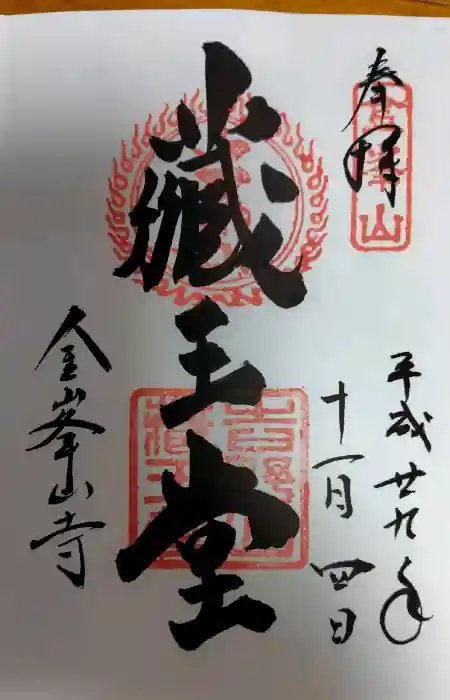 奉拝
平成廿九年
十一月四日
蔵王堂
金峯山寺